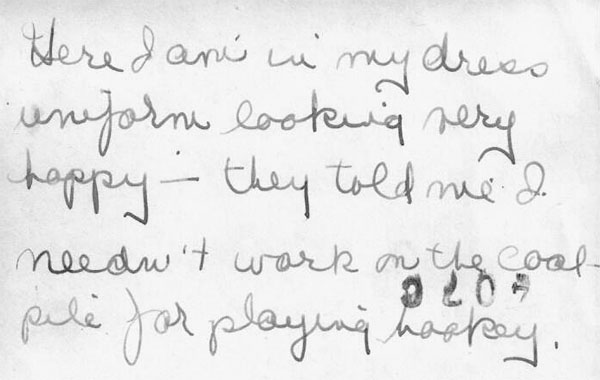 Here I am in my dress
uniform looking very
happy — they told me I
needn't work on the coal-
pile for playing hookey.